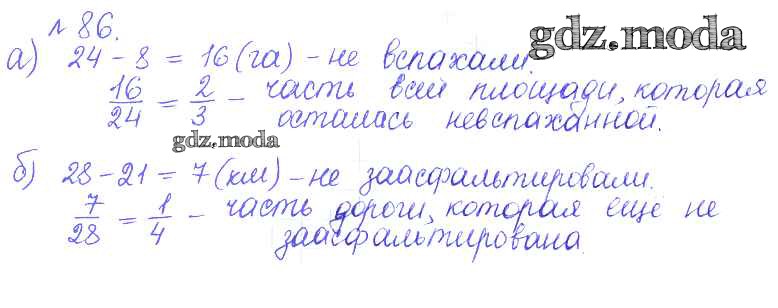 № 86.
gdz.moda
а) 24 - 8 = 16 (га) - не вспахали.
16/24 = 2/3 - часть всей площади, которая
осталась невспаханной.
gdz.moda
б) 28 - 21 = 7 (км) - не заасфальтировали.
7/28 = 1/4 - часть дороги, которая ещё не
заасфальтирована